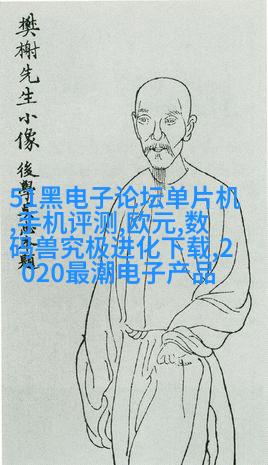 樊榭先生小像
後學
題
51黑电子论坛单片机
,手机评测,欧元,数
码兽究极进化下载,2
020最潮电子产品